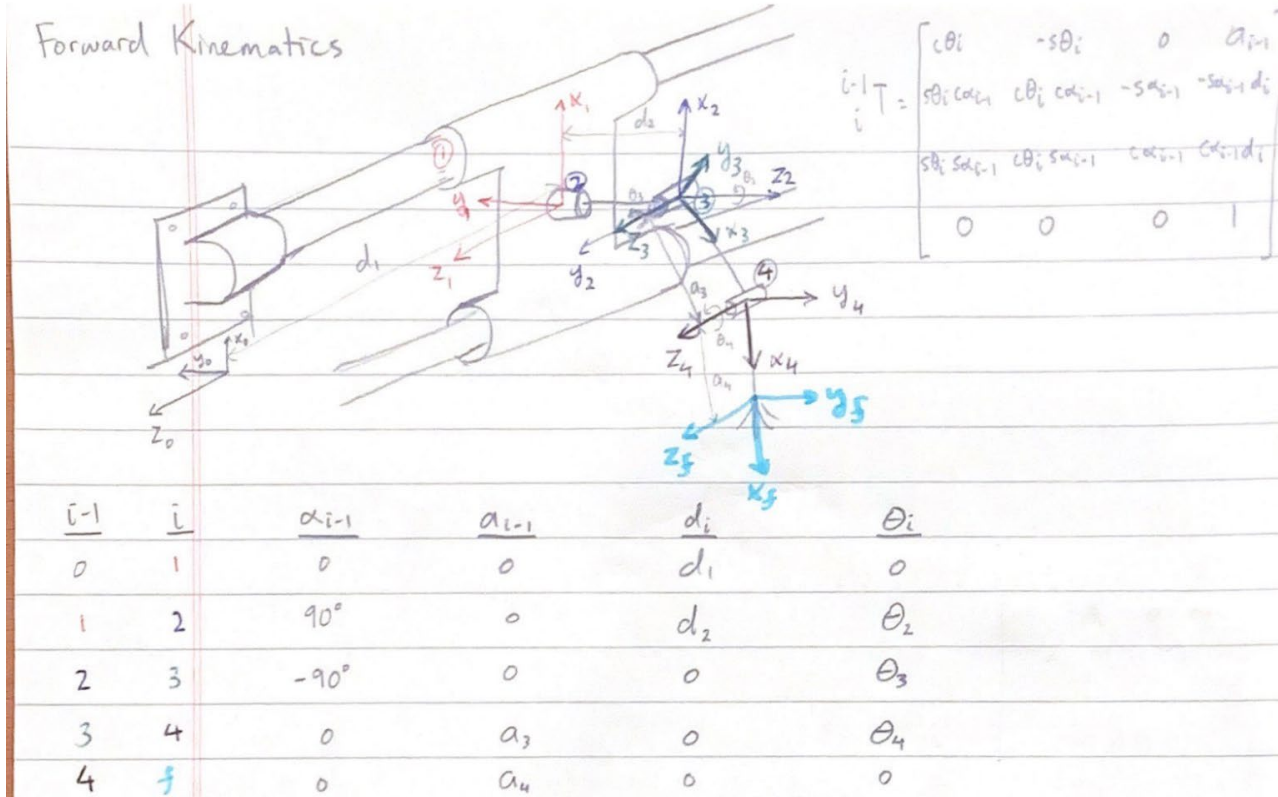 Forward Kinematics
i-1
i T = [ cθi -sθi 0 ai-1
sθi cαi-1 cθi cαi-1 -sαi-1 -sαi-1 di
sθi sαi-1 cθi sαi-1 cαi-1 cαi-1 di
0 0 0 1 ]
①
x1
d2
x2
y3
②
θ2
z2
y1
θ3
③
z1
z3
x3
y2
d1
④
a3
y4
x0
y0
z4
θ4
x4
a4
z0
yf
zf
xf
i-1 i αi-1 ai-1 di θi
0 1 0 0 d1 0
1 2 90° 0 d2 θ2
2 3 -90° 0 0 θ3
3 4 0 a3 0 θ4
4 f 0 a4 0 0